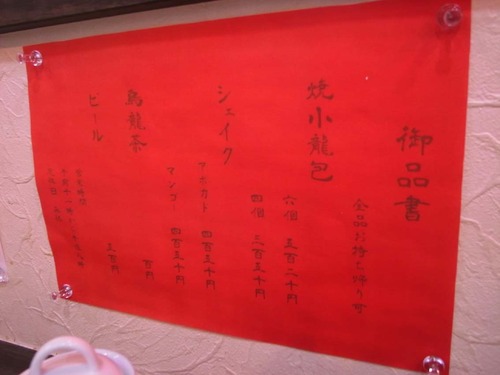 御品書
全品お持ち帰り可
焼小龍包
六個 五百二十円
四個 三百五十円
シェイク
アボカド 四百五十円
マンゴー 四百五十円
烏龍茶 百円
ビール 五百円
営業時間